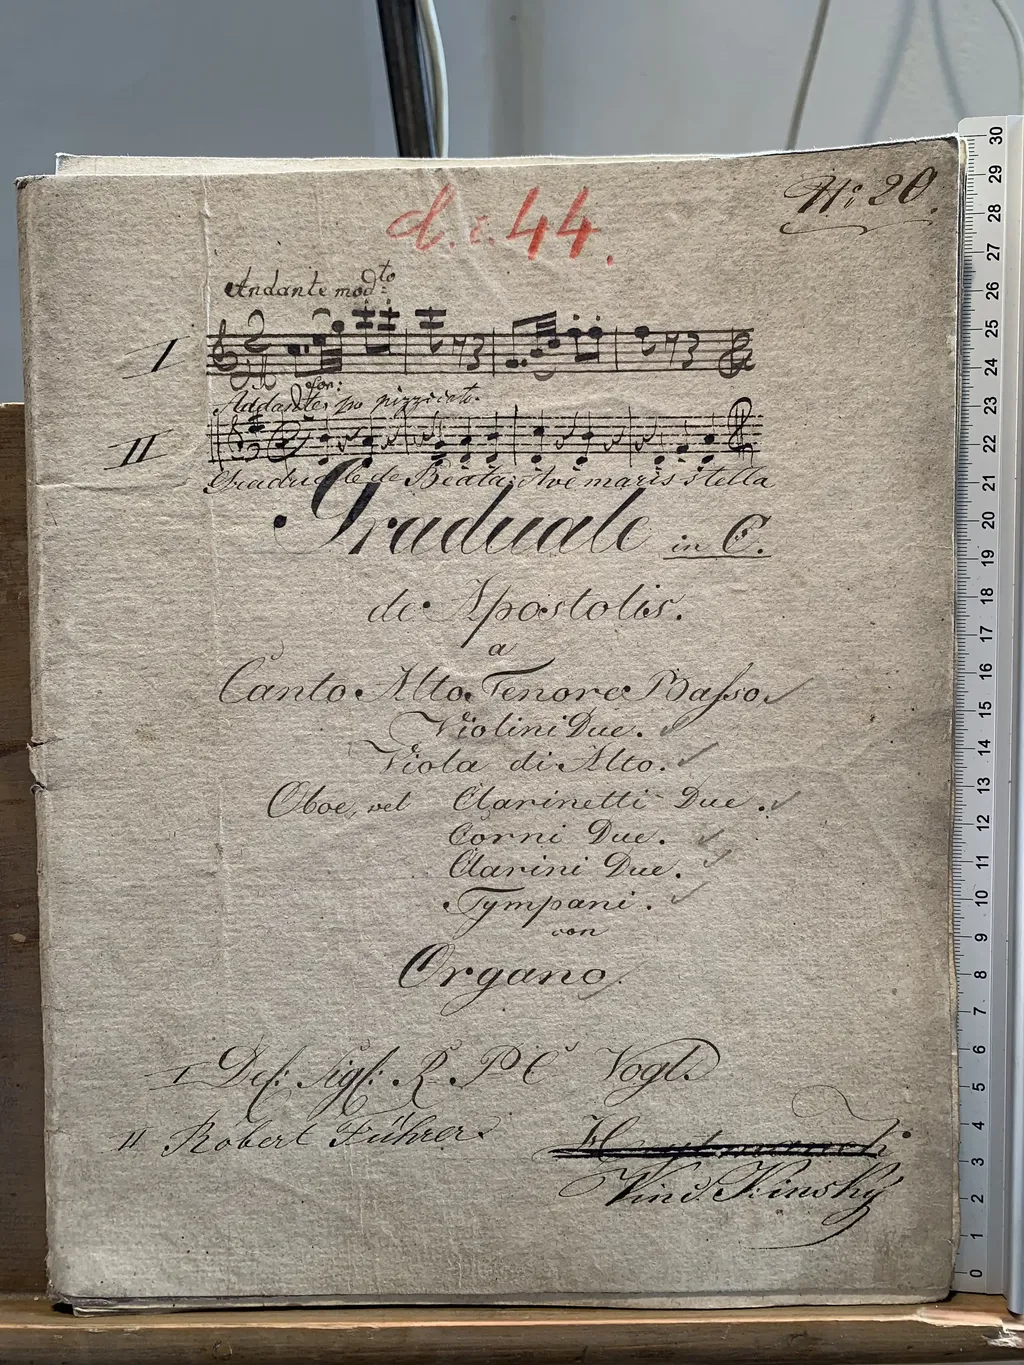 No 20.
d. c. 44.
Andante mod:to
I
for:
Addante, pizzicato.
II
Graduale de Beata: Ave maris stella
Graduale in C.
de Apostolis.
a
Canto Alto Tenore Basso.
Violini Due.
Viola di Alto.
Oboe, vel Clarinetti Due.
Corni Due.
Clarini Due.
Tympani.
con
Organo.
I Del: Sigl: R P C Vogl.
II Robert Führer
Vinc. Kinsky
30
29
28
27
26
25
24
23
22
21
20
19
18
17
16
15
14
13
12
11
10
9
8
7
6
5
4
3
2
1
0